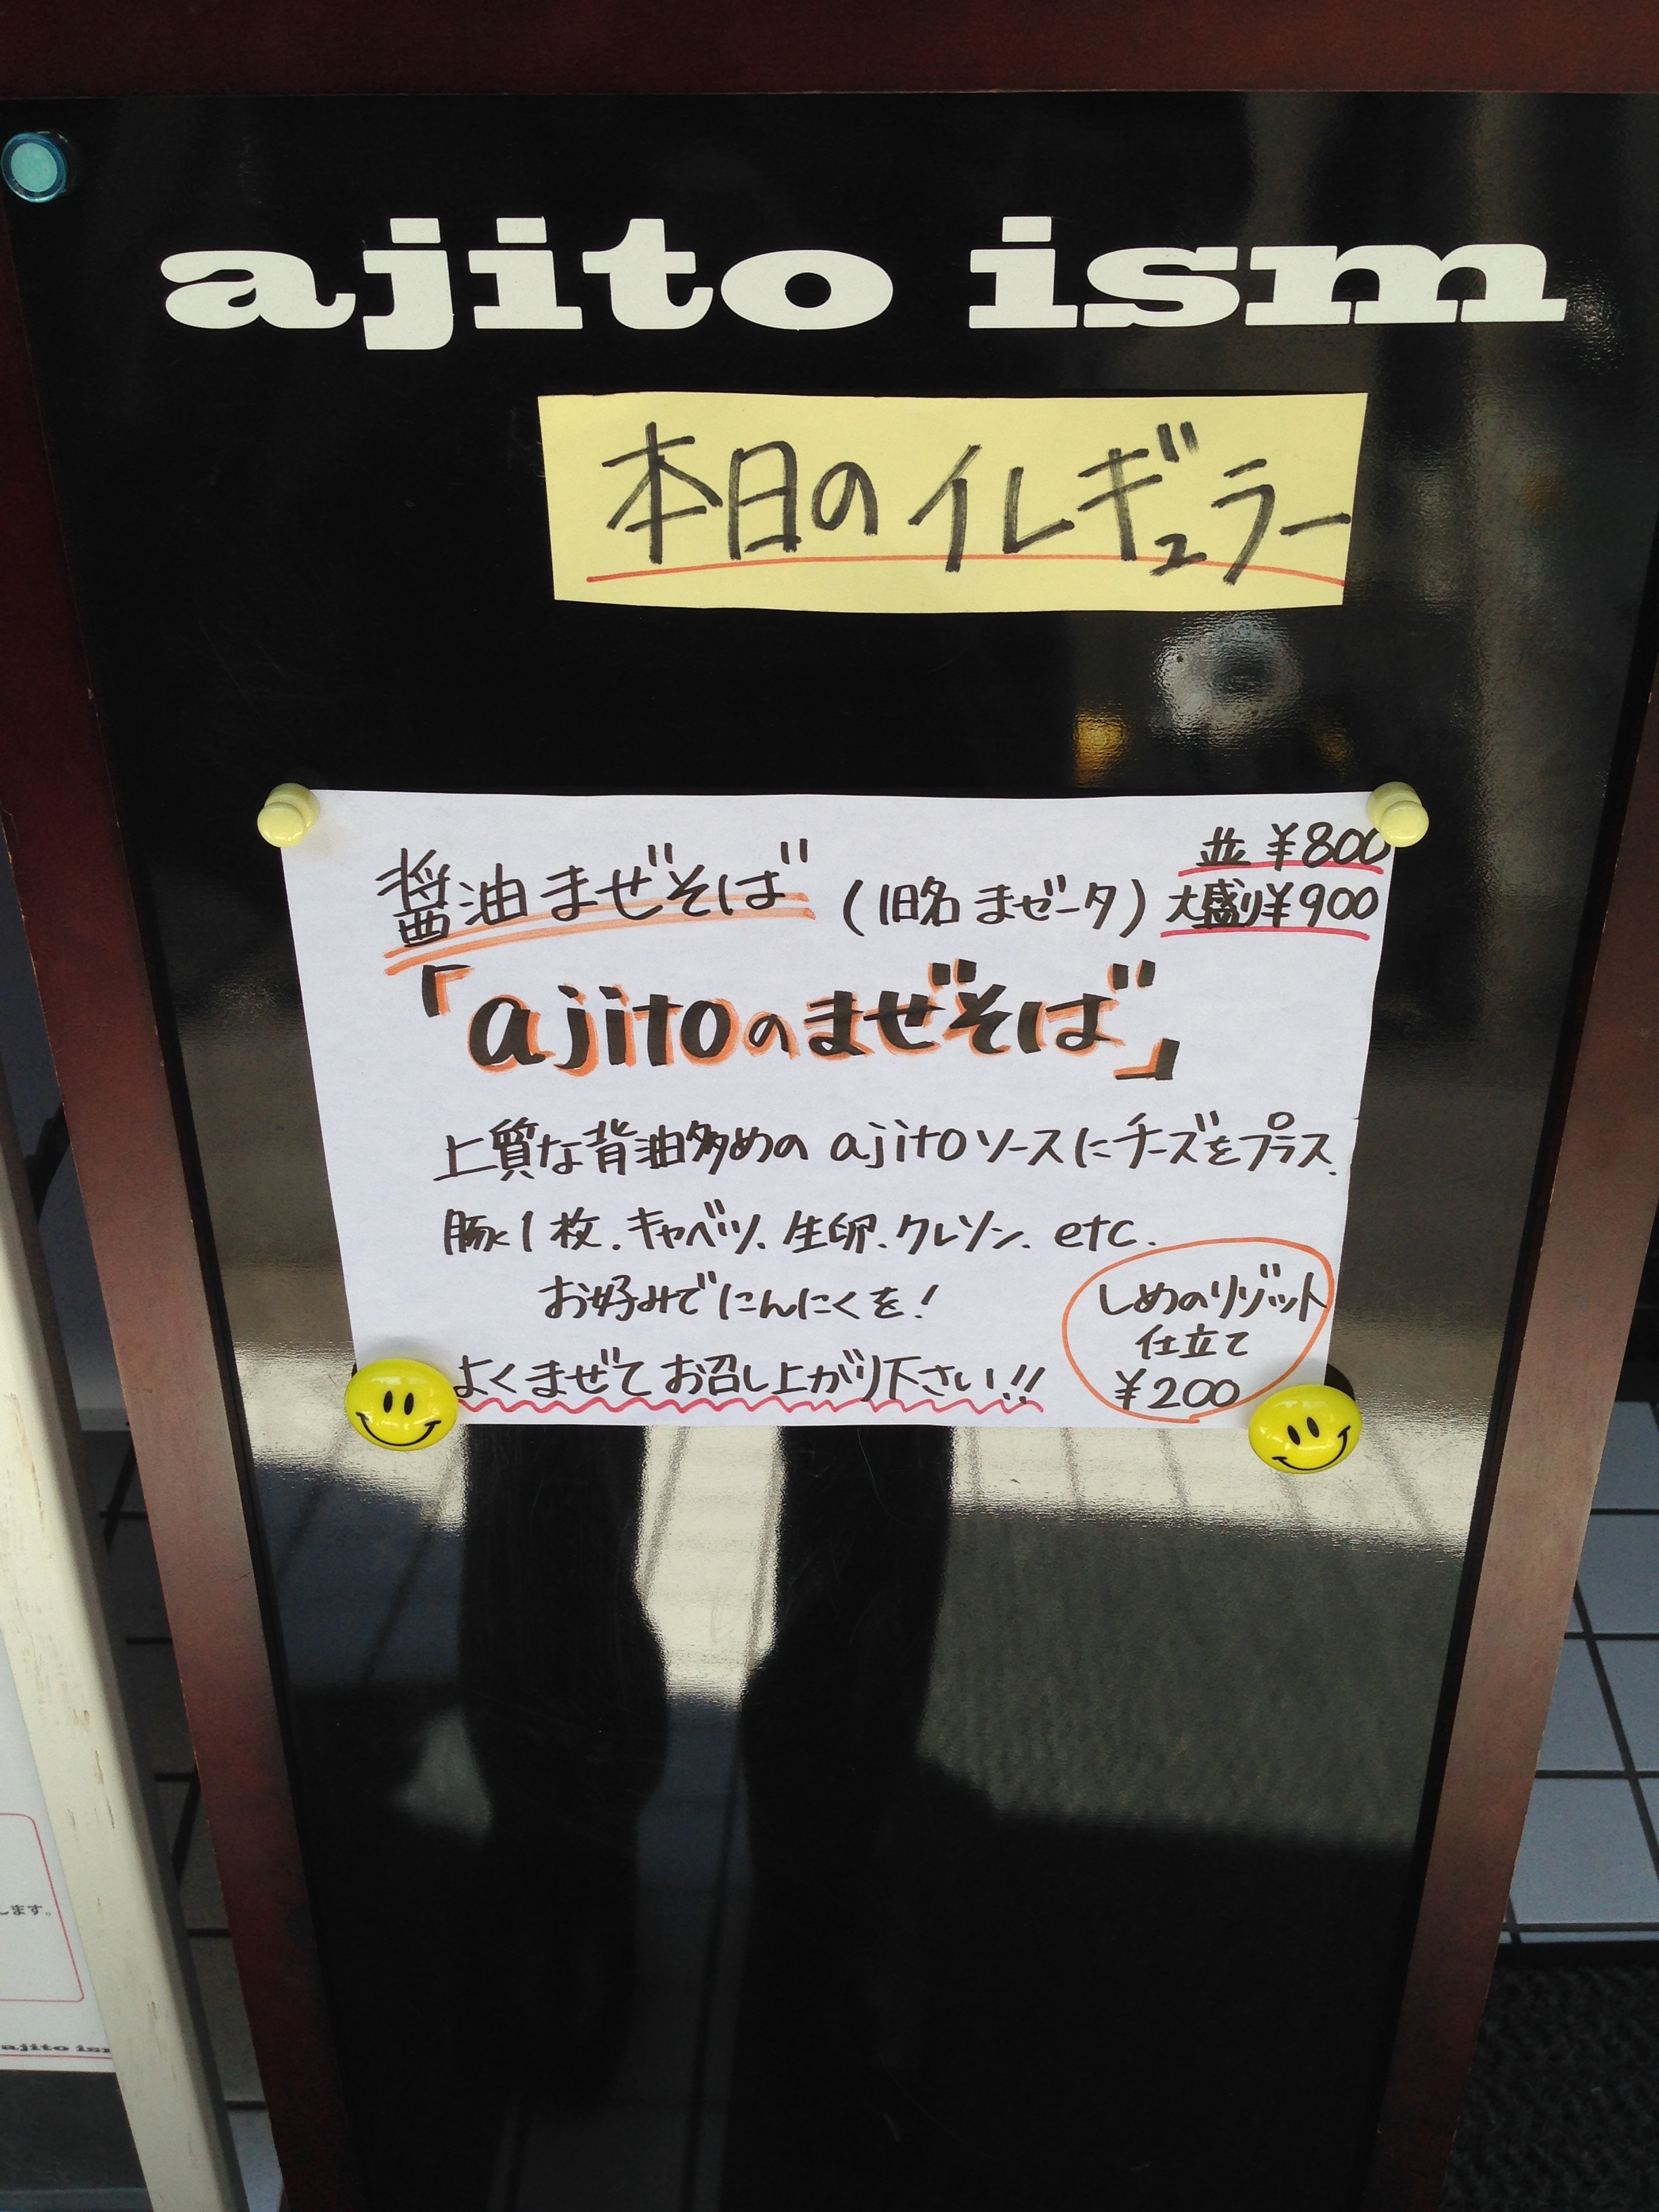 ajito ism
本日のイレギュラー
醤油まぜそば (旧名 まぜータ) 並 ¥800
大盛り¥900
「ajitoのまぜそば」
上質な背油多めの ajitoソースにチーズをプラス.
豚1枚.キャベツ.生卵.クレソン. etc.
お好みでにんにくを!
よくまぜてお召し上がり下さい!!
しめのリゾット
仕立て
¥200
します。
ajito ism